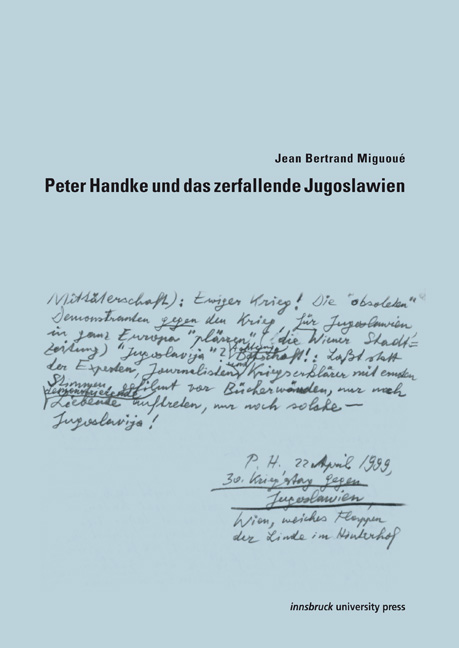 Jean Bertrand Miguoué
Peter Handke und das zerfallende Jugoslawien
Mittäterschaft): Ewiger Krieg! Die "obsoleten"
Demonstranten gegen den Krieg, für Jugoslawien
in ganz Europa "plärren" (die Wiener Stadt=
zeitung) "Jugoslavija"? Botschaft!: Laßt statt
der Experten, Journalisten und Kriegserklärer mit ernsten
Stimmen, gefilmt vor Bücherwänden, nur noch
demonstrierende
Liebende auftreten, nur noch solche –
Jugoslavija!
P. H., 22. April 1999,
30. Kriegstag gegen
Jugoslawien,
Wien, weiches Flappen
der Linde im Hinterhof
innsbruck university press